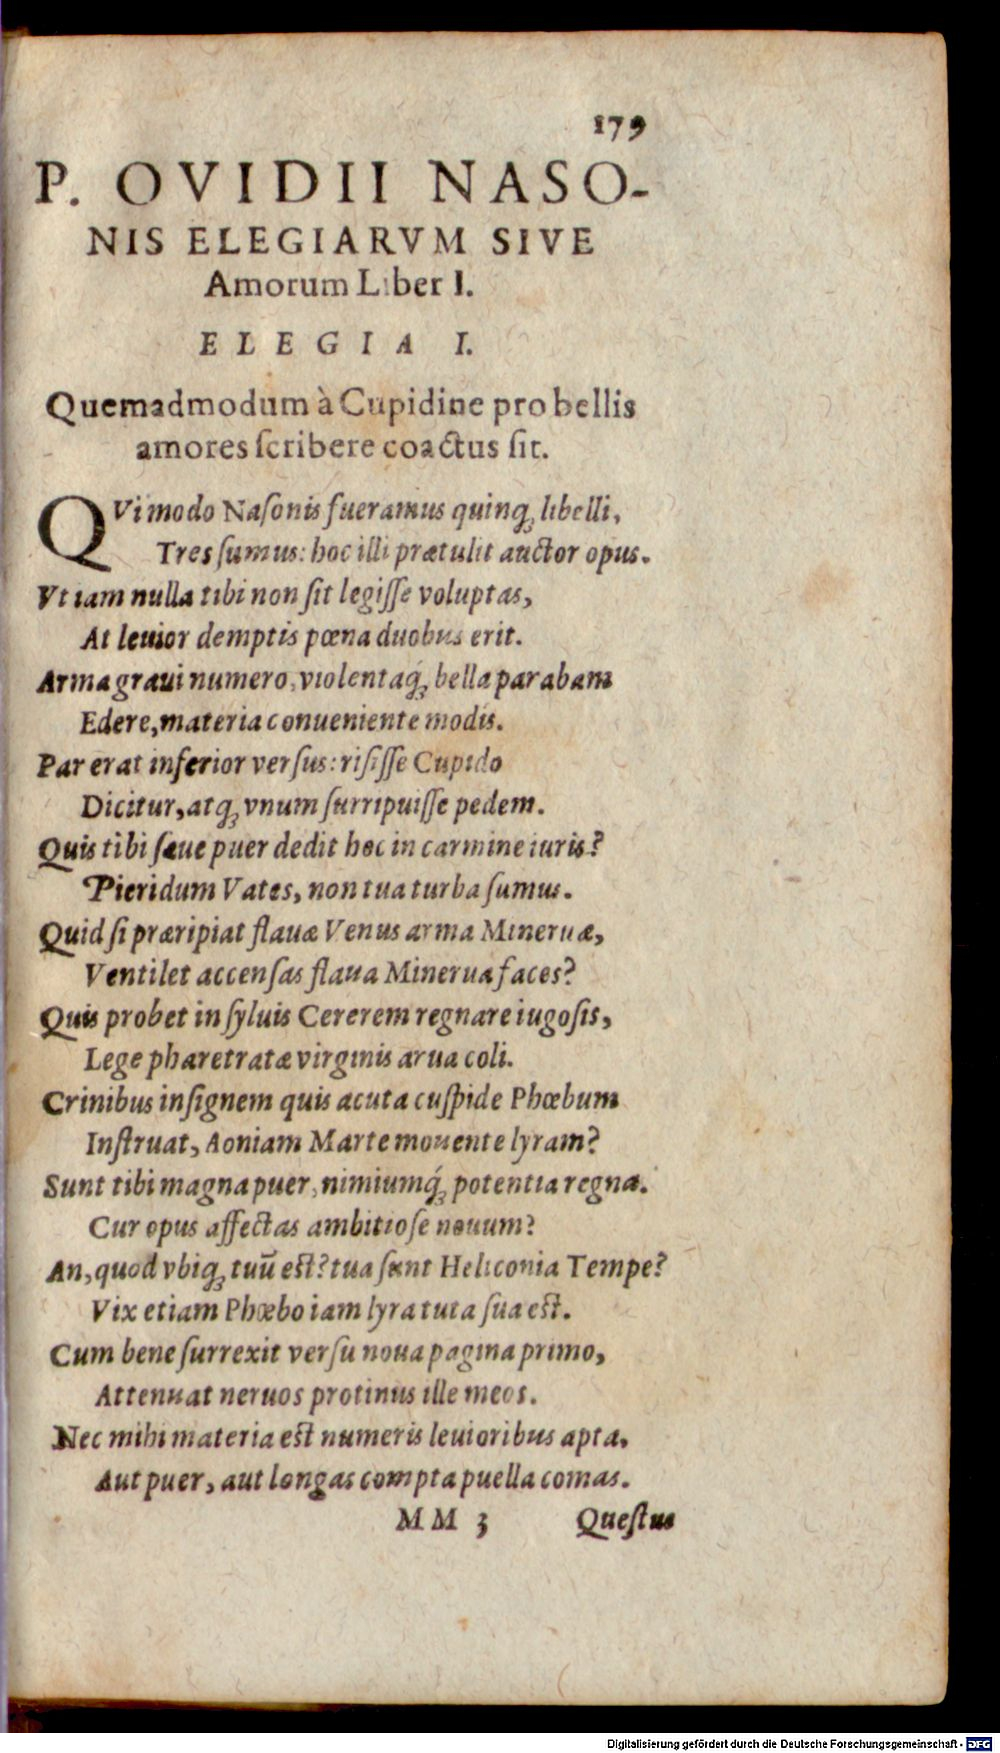 179
P. OVIDII NASO-
NIS ELEGIARVM SIVE
Amorum Liber I.
ELEGIA I.
Quemadmodum à Cupidine pro bellis
amores ſcribere coactus ſit.
QVi modo Naſonis fueramus quinq́; libelli,
Tres ſumus: hoc illi prætulit auctor opus.
Vt iam nulla tibi non ſit legiſſe voluptas,
At leuior demptis pœna duobus erit.
Arma graui numero, violentaq́; bella parabam
Edere, materia conueniente modis.
Par erat inferior verſus: riſiſſe Cupido
Dicitur, atq; vnum ſurripuiſſe pedem.
Quis tibi ſæue puer dedit hoc in carmine iuris?
Pieridum Vates, non tua turba ſumus.
Quid ſi præripiat flauæ Venus arma Mineruæ,
Ventilet accenſas flaua Minerua faces?
Quis probet in ſyluis Cererem regnare iugoſis,
Lege pharetratæ virginis arua coli.
Crinibus inſignem quis acuta cuſpide Phœbum
Inſtruat, Aoniam Marte mouente lyram?
Sunt tibi magna puer, nimiumq́; potentia regna.
Cur opus affectas ambitioſe nouum?
An, quod vbiq; tuū eſt? tua ſunt Heliconia Tempe?
Vix etiam Phœbo iam lyra tuta ſua eſt.
Cum bene ſurrexit verſu noua pagina primo,
Attenuat neruos protinus ille meos.
Nec mihi materia eſt numeris leuioribus apta,
Aut puer, aut longas compta puella comas.
MM 3 Queſtus
Digitalisierung gefördert durch die Deutsche Forschungsgemeinschaft - DFG